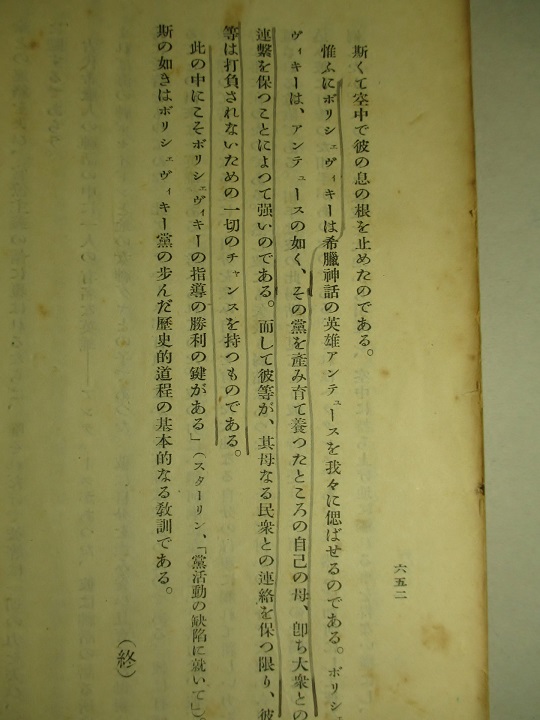 斯くて空中で彼の息の根を止めたのである。
惟ふにボリシェヴィキーは希臘神話の英雄アンテュースを我々に偲ばせるのである。ボリシェ
ヴィキーは、アンテュースの如く、その黨を產み育て養つたところの自己の母、卽ち大衆との
連繫を保つことによつて强いのである。而して彼等が、其母なる民衆との連絡を保つ限り、彼
等は打負されないための一切のチャンスを持つものである。
此の中にこそボリシェヴィキーの指導の勝利の鍵がある」(スターリン、「黨活動の缺陷に就いて」)。
斯の如きはボリシェヴィキー黨の步んだ歷史的道程の基本的なる敎訓である。
(終)
六五二